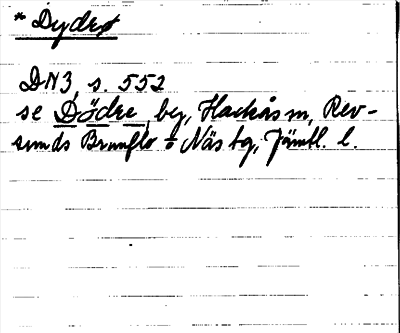 * Dydrø
DN3, s. 552
se Dödre, by, Hackås sn, Rev-
sunds Brunflo o Näs tg, Jämtl. l.